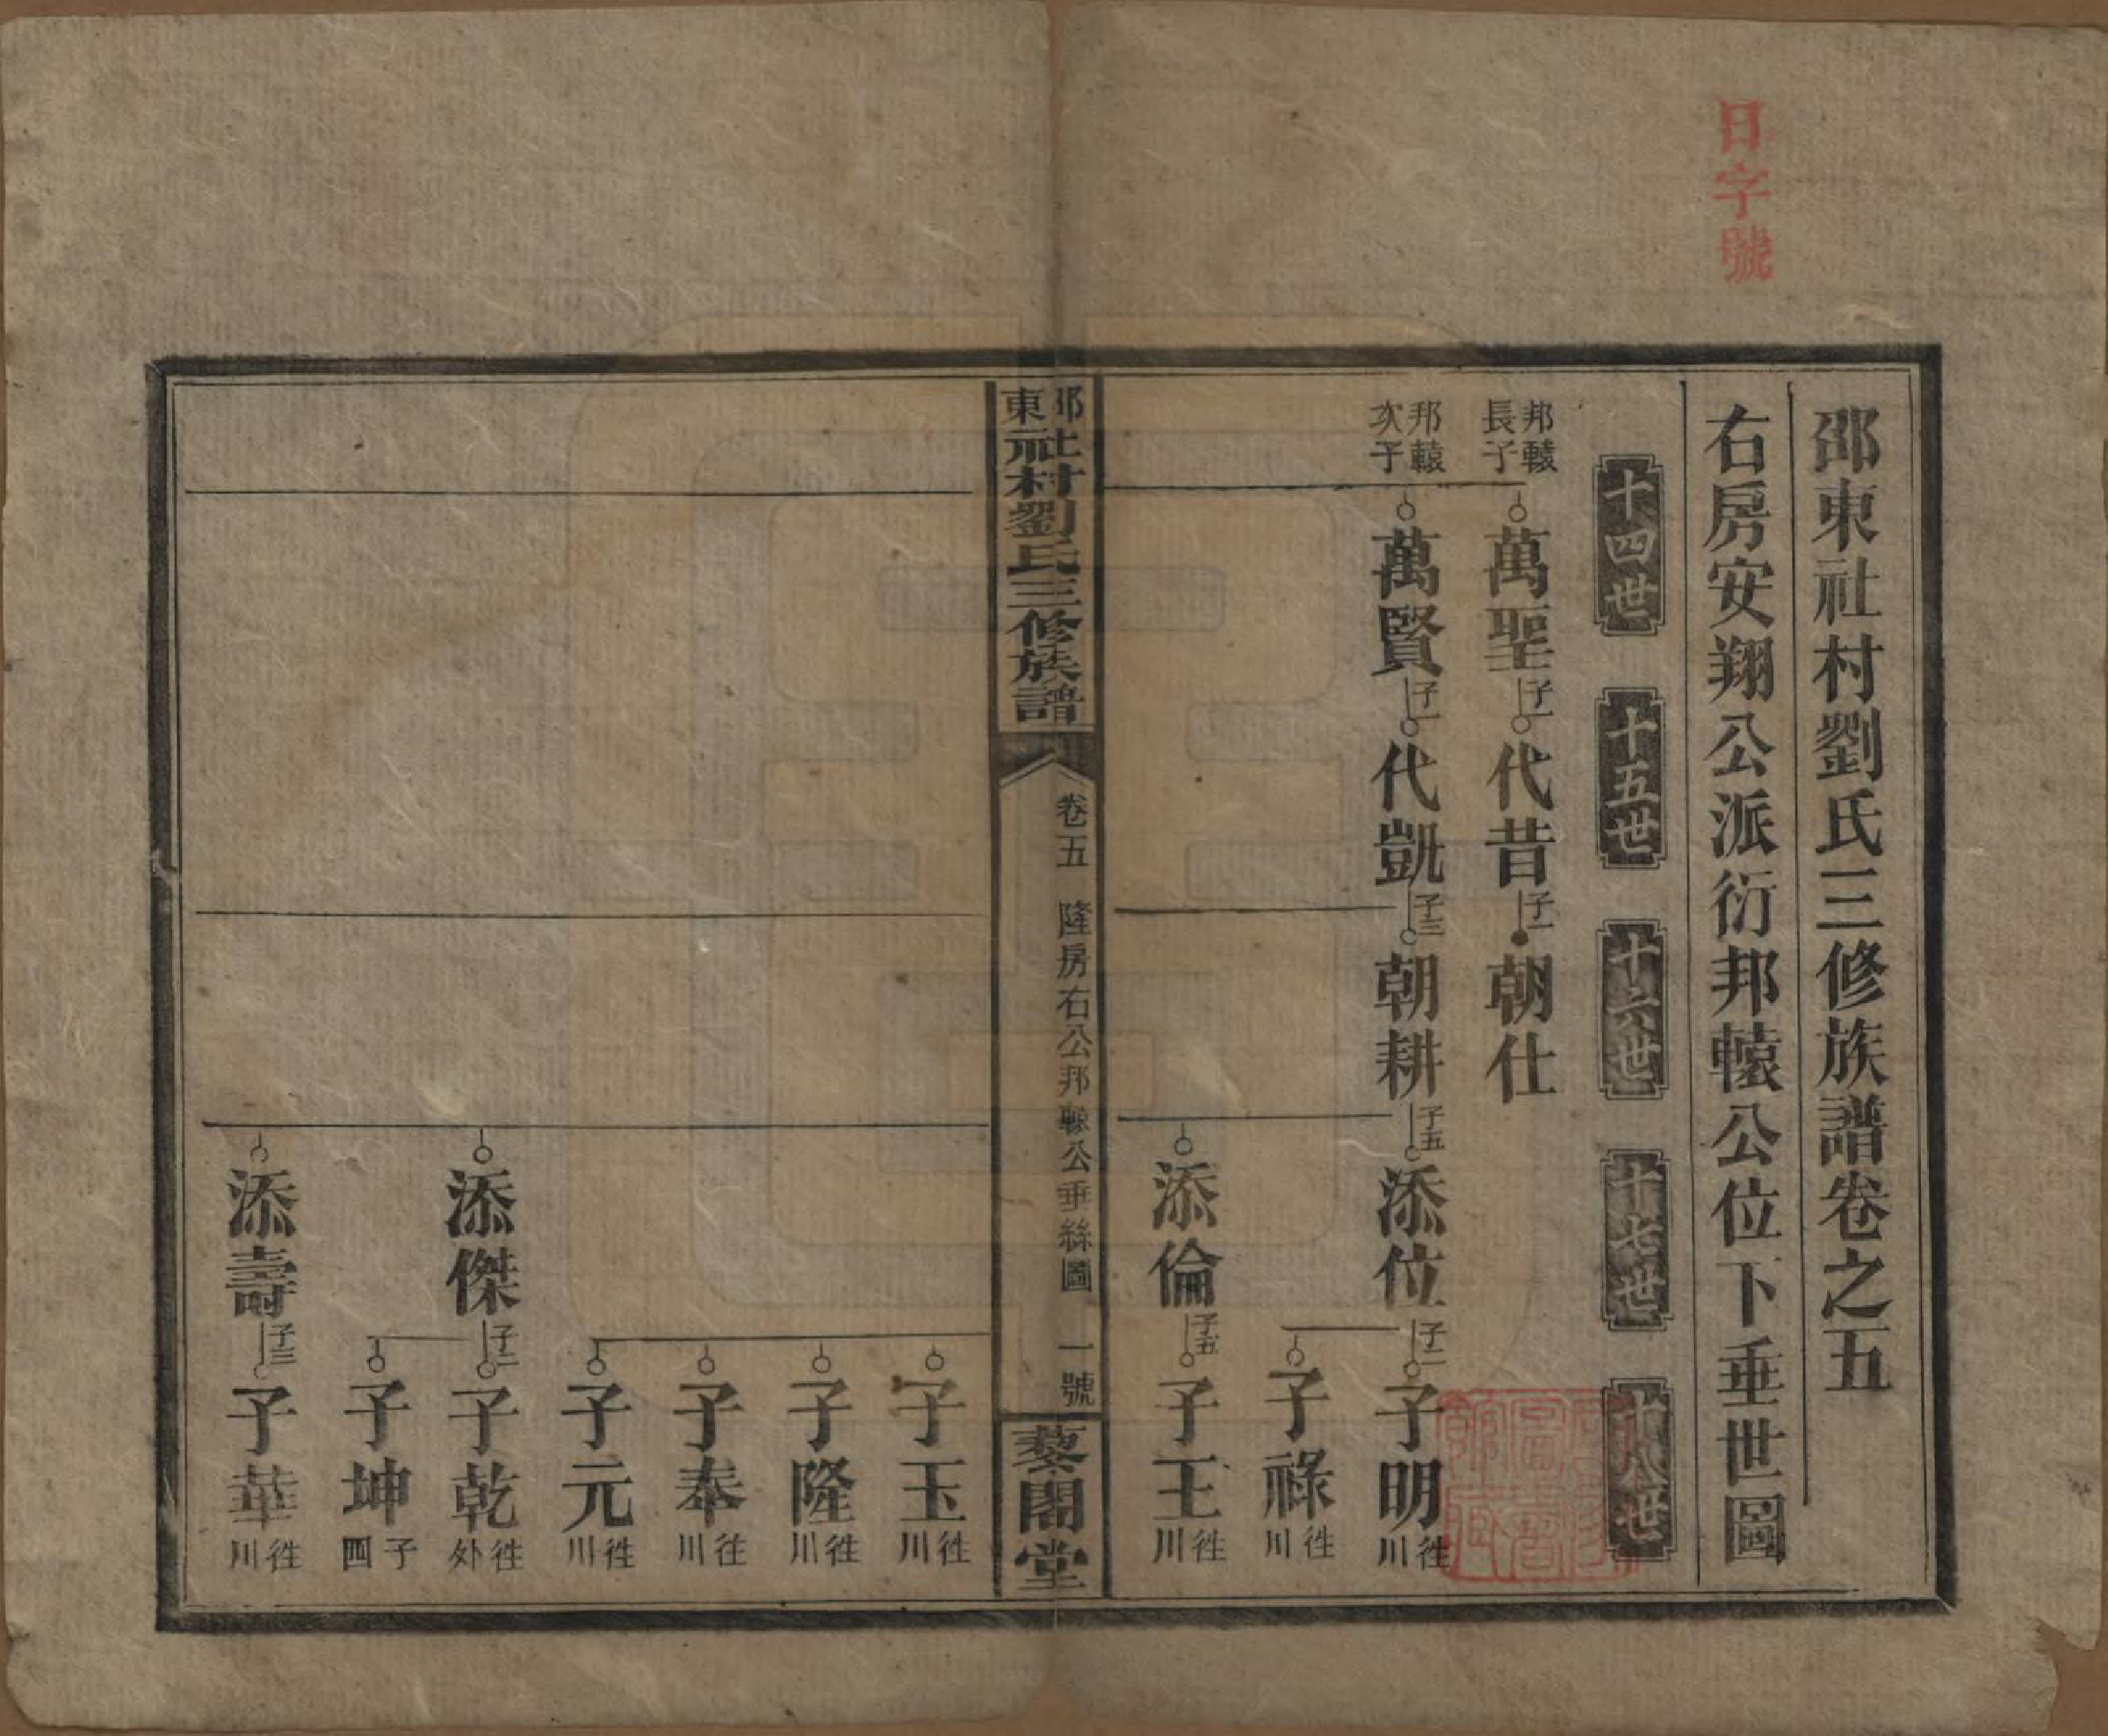 日字號
邵東社村劉氏三修族譜卷之五
右房安翔公派衍邦轅公位下垂世圖
十四世 十五世 十六世 十七世 十八世
邦轅長子 萬聖 子一 代昔 子一 朝仕
邦轅次子 萬賢 子一 代凱 子三 朝耕 子五 添位 子二 子明 徃川
子祿 徃川
添倫 子五 子王 徃川
邵東社村劉氏三修族譜 卷五 隆房右公邦轅公垂絲圖 一號 藜閣堂
子玉 徃川
子隆 徃川
子奉 徃川
子元 徃川
添傑 子二 子乾 徃外
子坤 子四
添壽 子三 子華 徃川